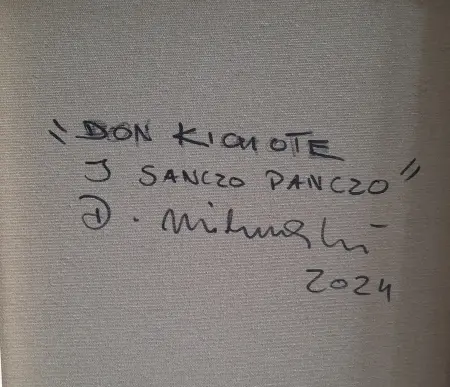 "DON KICHOTE
I SANCZO PANCZO"
D.
2024